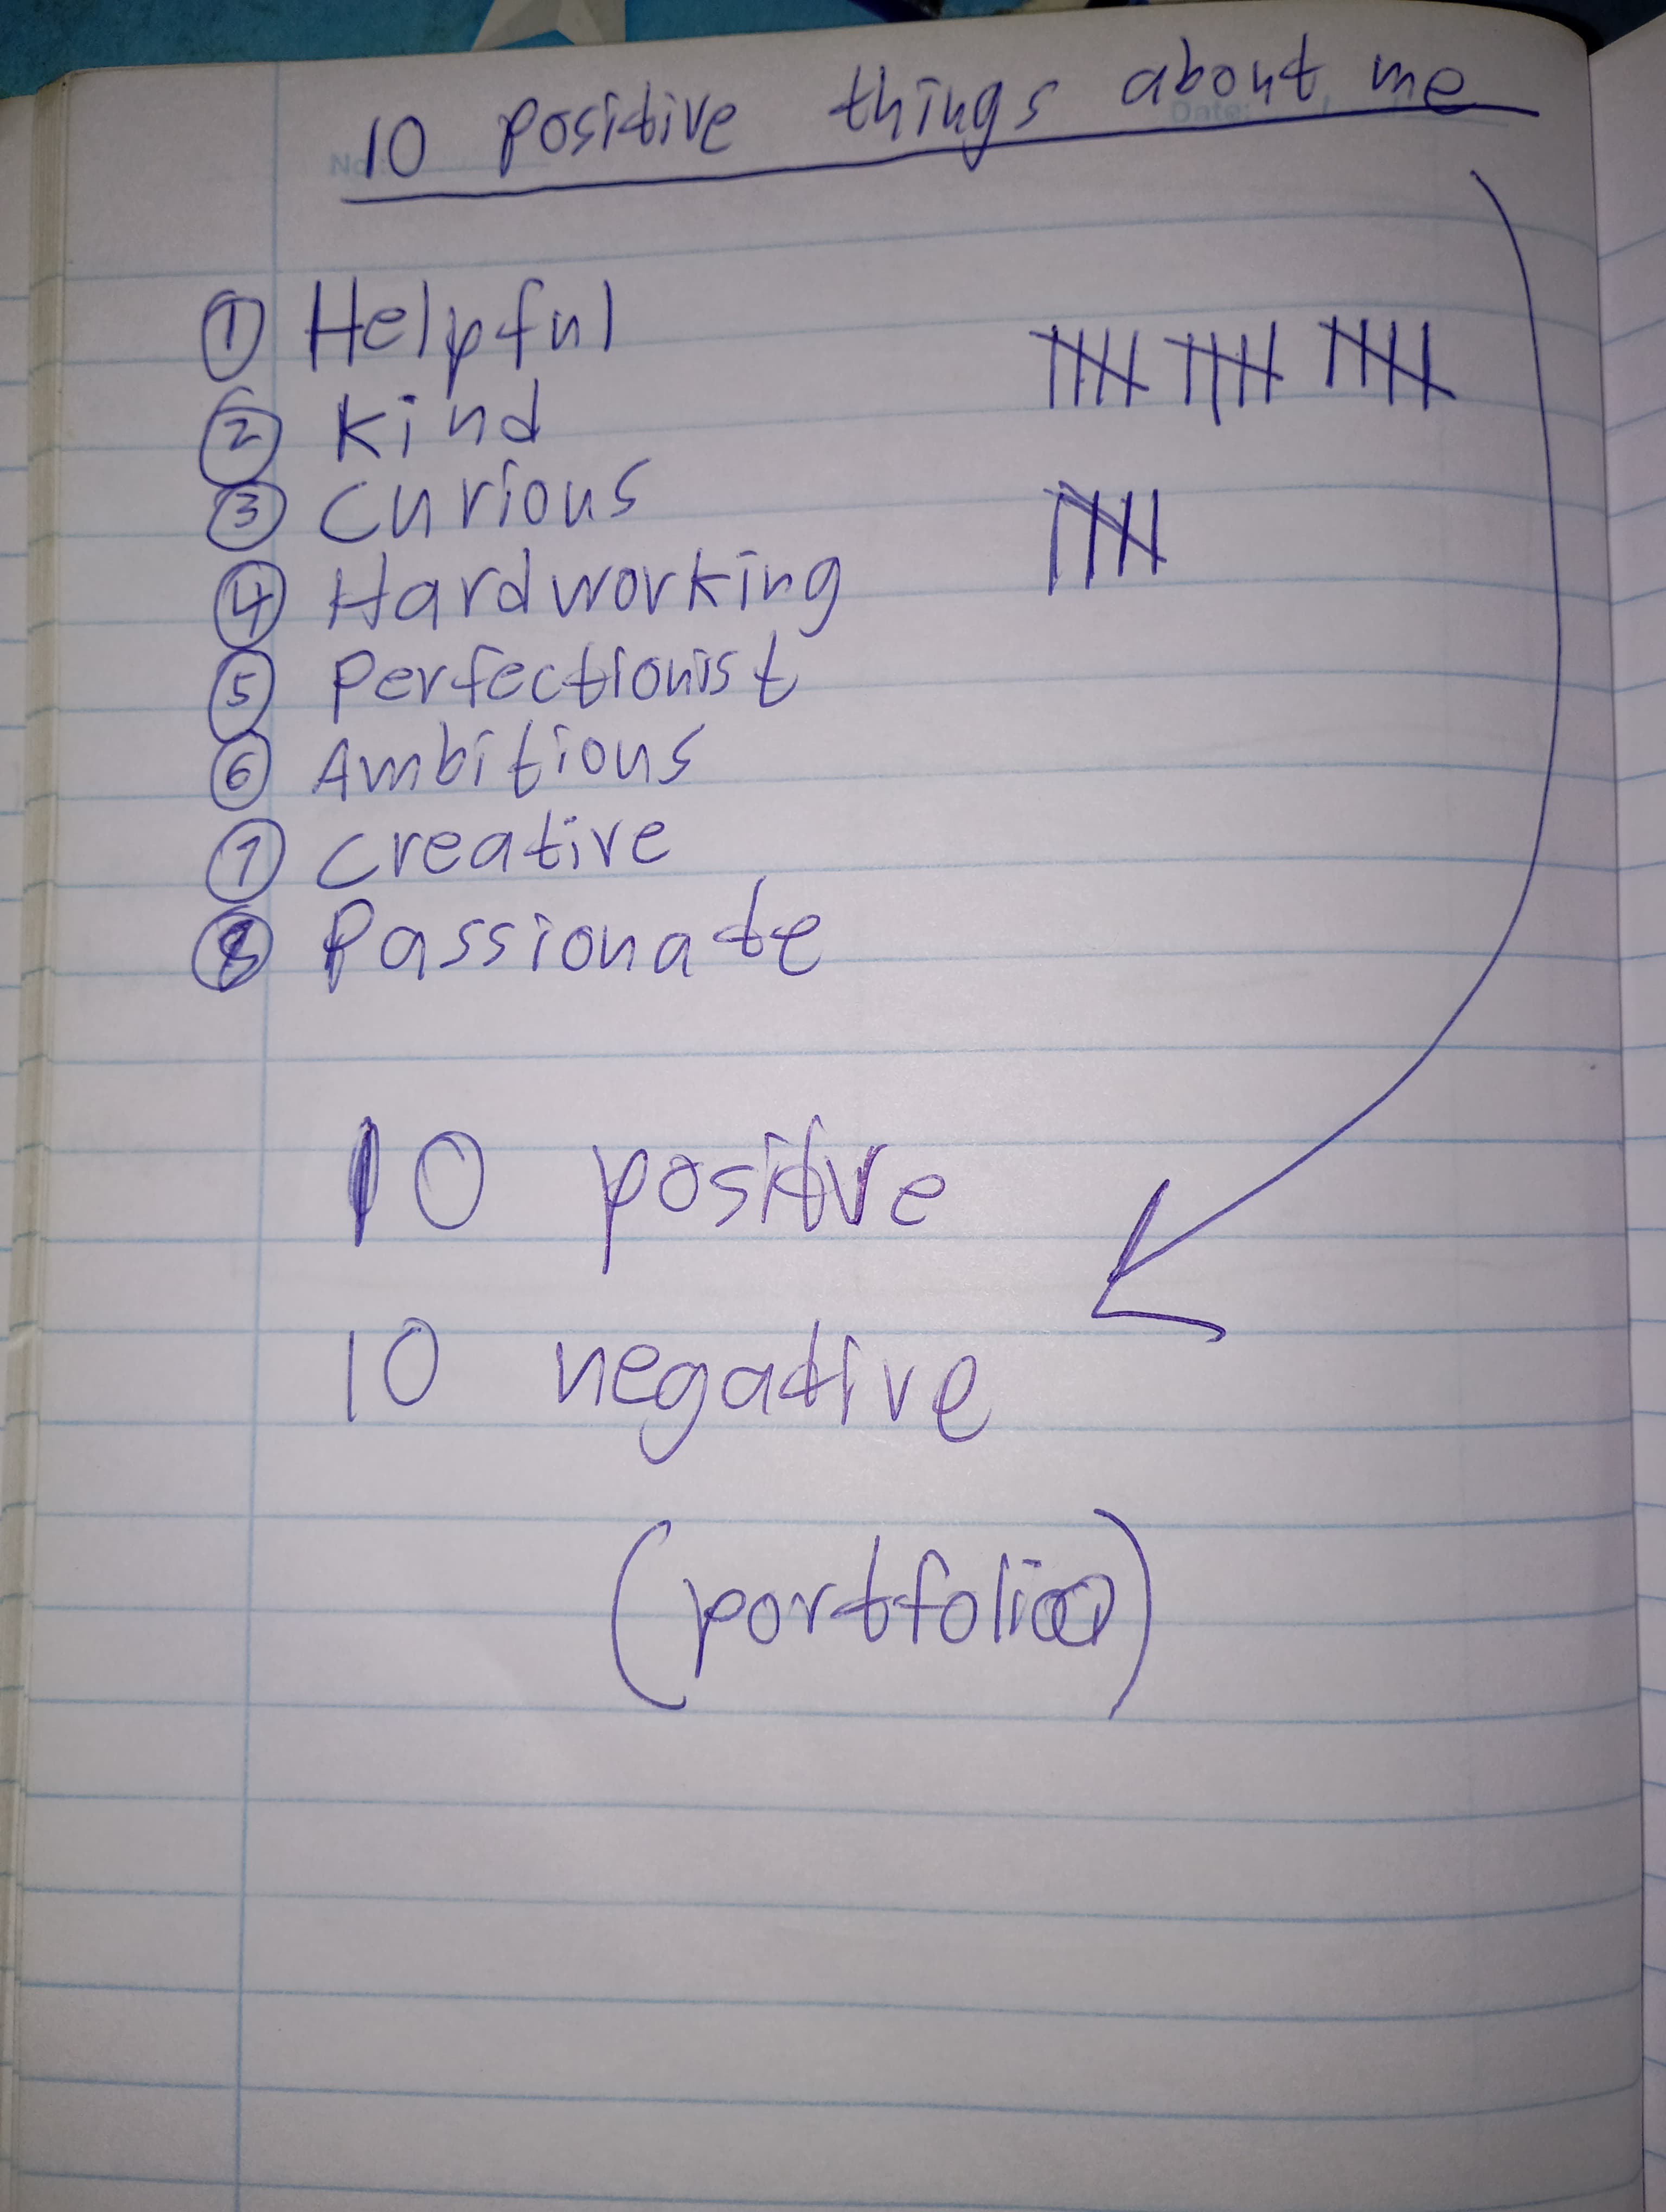 No:
Date:
10 positive things about me
① Helpful
② Kind
③ Curious
④ Hardworking
⑤ Perfectionist
⑥ Ambitious
⑦ Creative
⑧ Passionate
10 positive
10 negative
(portfolio)